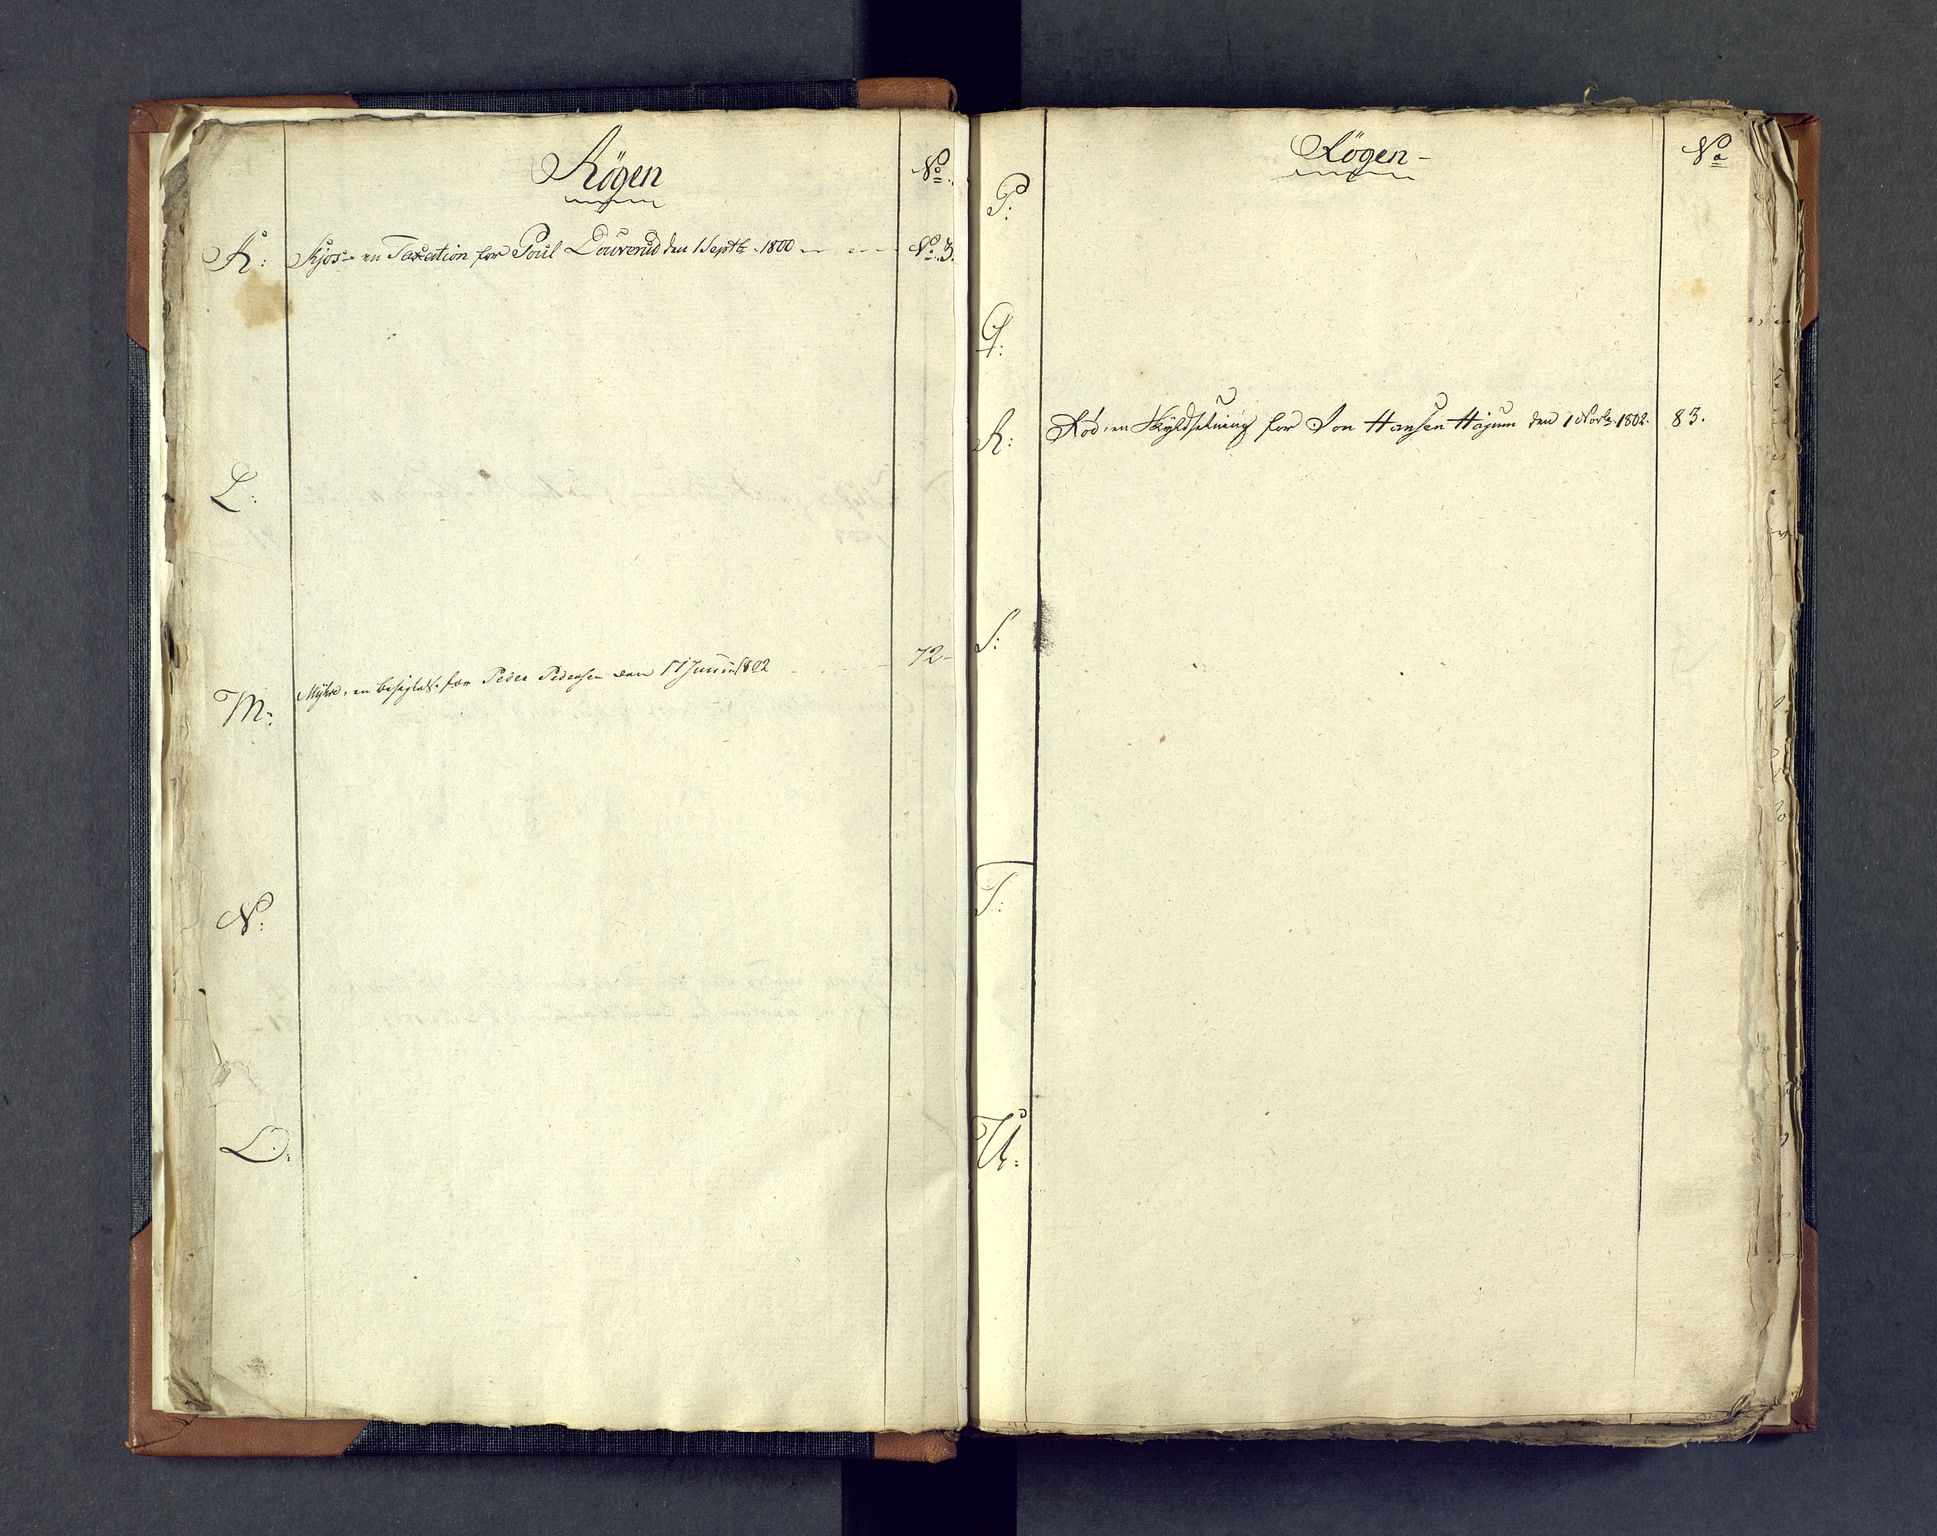 Røgen
No
K: Kjos- en Taxation for Poul Louverud den 1 Septb. 1800 — — — No. 3.
L:
M: Myhre, en besigtelse for Peder Pedersen den 17 Junii 1802 72-
N:
O:
Røgen-
No
P:
Q:
R: Rød, en Skyldsetning for Jon Hansen Højum den 1 Novbr. 1802. 83.
S:
T:
U: